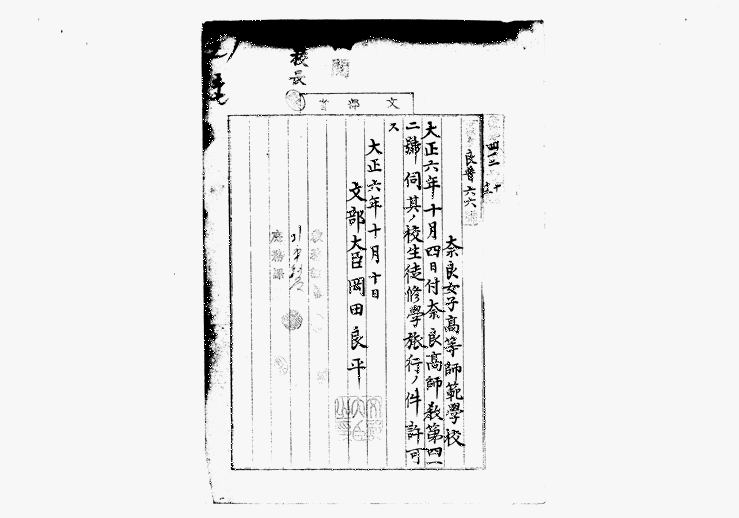 校長
閲
文部省
四一二
良普六六
奈良女子高等師範學校
大正六年十月四日付奈良高師教第四一
二號伺其ノ校生徒修學旅行ノ件許可
ス
大正六年十月十日
文部大臣岡田良平
庶務課